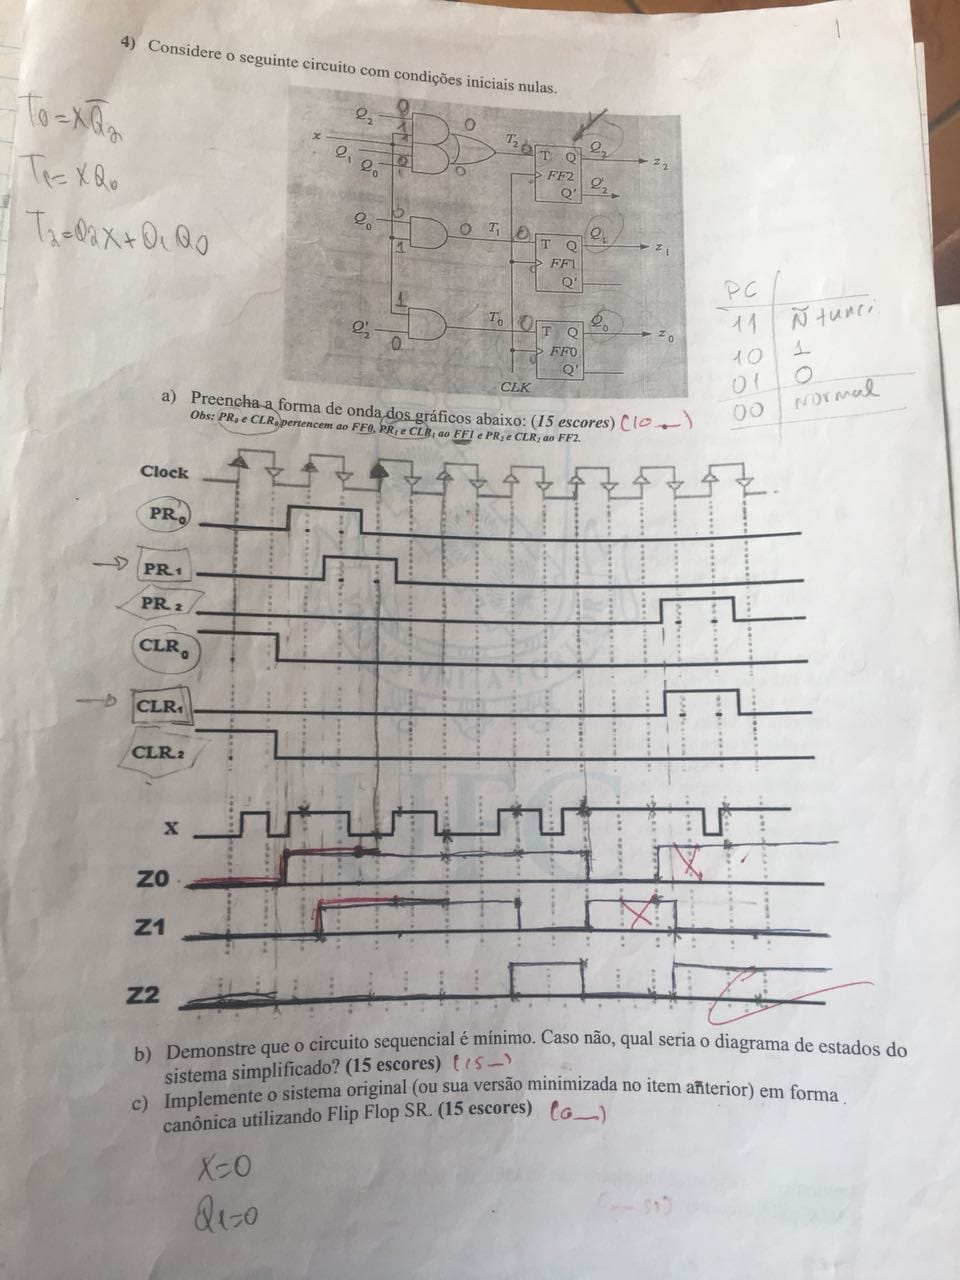 1
4) Considere o seguinte circuito com condições iniciais nulas.
T0 = XQ̅2
T1 = XQ0
T2 = Q2X + Q1Q0
Q2 0 1 0 T2 0 T Q Q2 z2
x
Q1 Q0 0 0 FF2
Q' Q'2
Q0 0 1 0 T1 0 T Q Q1 z1
FF1
Q'
1 Q'2 0 T0 0 T Q Q0 z0
FF0
Q'
CLK
PC
11 Ñ funci.
10 1
01 0
00 Normal
a) Preencha a forma de onda dos gráficos abaixo: (15 escores) (10 —)
Obs: PR0 e CLR0 pertencem ao FF0, PR1 e CLR1 ao FF1 e PR2 e CLR2 ao FF2.
Clock
PR0
PR1
PR2
CLR0
CLR1
CLR2
UFC
X
Z0
Z1
Z2
b) Demonstre que o circuito sequencial é mínimo. Caso não, qual seria o diagrama de estados do
sistema simplificado? (15 escores) (15 —)
c) Implemente o sistema original (ou sua versão minimizada no item anterior) em forma
canônica utilizando Flip Flop SR. (15 escores) (0 —)
X=0
Q1=0